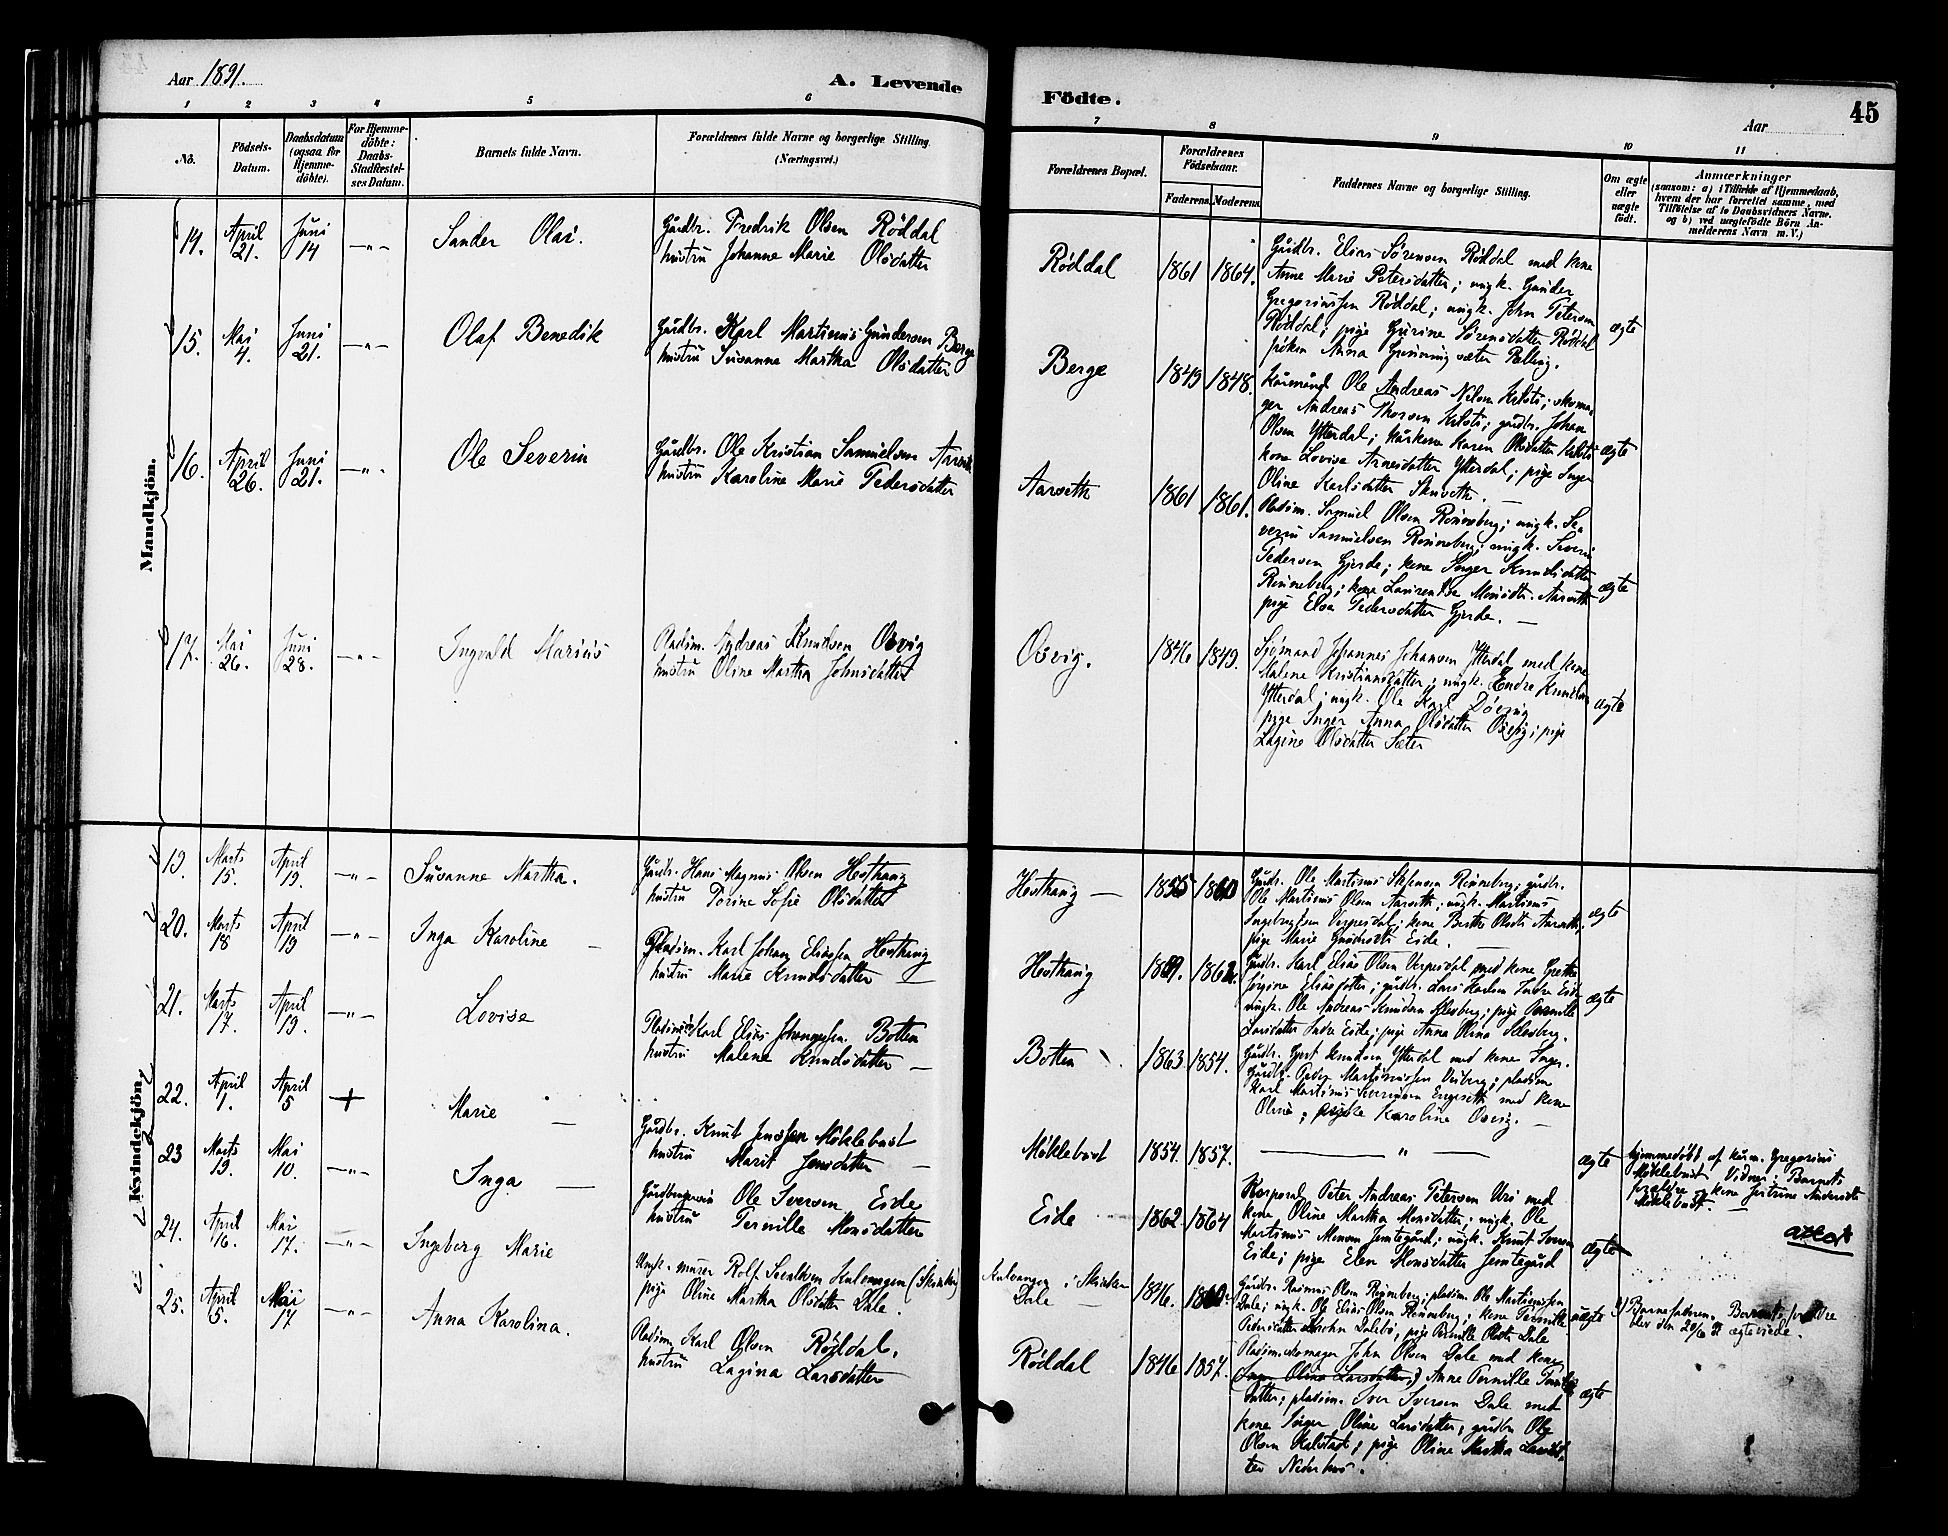 Aar 1891.
A. Levende
Födte.
Aar
45
1 2 3 4 5 6
7 8 9 10 11
No.
Födsels-
Datum.
Daabsdatum
(ogsaa for
Hjemme-
döbte).
For Hjemme-
döbte:
Daabs-
Stadfæstel-
ses Datum.
Barnets fulde Navn.
Forældrenes fulde Navne og borgerlige Stilling.
(Næringsvei.)
Forældrenes Bopæl.
Forældrenes
Födselsaar.
Faderens. Moderens.
Faddernes Navne og borgerlige Stilling.
Om ægte
eller
uægte
födt.
Anmærkninger
(saasom: a) i Tilfælde af Hjemmedaab,
hvem der har forrettet samme, med
Tilföielse af to Daabsvidners Navne.
og b) ved uægtefödte Börn An-
melderens Navn m.V.)
Mandkjön.
14. April 21. Juni 14 —"— Sander Olai.
Gårdbr. Fredrik Olsen Røddal
hustru Johanne Marie Olsdatter
Røddal 1861 1864.
Gårdbr. Elias Sørensen Røddal med kone
Anne Marie Petersdatter; ungk. Gunder
Gregoriussen Røddal; ungk. John Petersen
Røddal; pige Gurine Sørensdatter Røddal
piken Anna
ægte
15. Mai 4. Juni 21. —"— Olaf Benedik
Gårdbr. Karl Martinus Gundersen Berge
hustru Susanne Martha Olsdatter
Berge 1849 1848.
Kårmand Ole Andreas Nilsen
ger Andreas Thorsen gårdbr. Johan
Olsen Ytterdal; kårkone Karen Olsdatter
kone Lovise Arnesdatter Ytterdal; pige Inger
Oline Karlsdatter
ægte
16. April 26. Juni 21. —"— Ole Severin
Gårdbr. Ole Kristian Samuelsen Aarseth
hustru Karoline Marie Pedersdatter
Aarseth 1861 1861.
Pladsm. Samuel Olsen Rønneberg; ungk. Se
verin Samuelsen Rønneberg; ungk. Severin
Pedersen Gjerde; kone Inger Knudsdatter
Rønneberg; kone Laurentse Monsdtr. Aarseth
pige Elsa Pedersdatter Gjerde. —
ægte
17. Mai 26. Juni 28. —"— Ingvald Marius
Pladsm. Andreas Knudsen Osvig
hustru Oline Martha Johnsdatter
Osvig. 1846 1849.
Sjømand Johannes Johansen Ytterdal med kone
Malene Kristiansdatter; ungk. Endre Knudsen
Ytterdal; ungk. Ole Karl
pige Inger Anna Olsdatter Osvig; pige
Lagine Olsdatter Sæter
ægte
Kvindekjön.
19. Marts 15. April 19. —"— Susanne Martha.
Gårdbr. Hans Magnus Olsen Hesthaug
hustru Torine Sofie Olsdatter
Hesthaug — 1855 1860
Gårdbr. Ole Martinus Stefansen Rønneberg; gårdbr.
Ole Martinus Olsen Aarseth; ungk. Martinus
Ingebrigtsen Verpesdal; kone Berthe Olsdtr Aarseth,
pige Marie Eide. —
ægte
20. Marts 18 April 19 —"— Inga Karoline —
Pladsm. Karl Johan Eliassen Hesthaug
hustru Marie Knudsdatter —
Hesthaug 1862.
Gårdbr. Karl Elias Olsen Verpesdal med kone Grethe
Jørgine Eliasdatter; gårdbr. Lars Indre Eide
ungk. Ole Andreas Knudsen pige Pernille
Larsdatter Indre Eide; pige Anne Olina
ægte
21. Marts 17. April 19. —"— Lovise
Pladsmd Karl Elias Johannessen Botten
hustru Malene Knudsdatter —
Botten 1863 1854.
Gårdbr. Gjert Knudsen Ytterdal med kone Inger.
Gårdbr. Peder Martinussen Viberg; pladsm
Karl Martinus Severinsen Engeseth med kone
Oline; Karoline Osvig. —
22. April 1. April 5 + Marie —
Gårdbr. Knut Jenssen Möklebust
hustru Marit Jensdatter —
Möklebust 1854. 1857. — " —
ægte
hjemmedöbt af kårm. Gregorius
Möklebust Vidner: Barnets
forældre og kone Jertrine Andersdtr
Möklebust. —
23 Marts 19. Mai 10. —"— Inga —
Gårdbrugersøn Ole Iversen Eide
hustru Pernille Monsdatter
Eide 1862 1864
Korporal Peter Andreas Petersen Uri med
kone Oline Martha Monsdatter; ungk. Ole
Martinus Monsen Jemtegård; ungk. Knut Iversen
Eide; pige Elen Monsdatter Jemtegård
ægte
24. April 16. Mai 17. —"— Ingeborg Marie
Ungk.-murer Rolf Kulvangen (Skinker)
pige Oline Martha Olsdatter Dale.
Kulvangen i
Dale — 1846.
Gårdbr. Rasmus Olsen Rønneberg; pladsm. Ole Martinussen
Dale; ungk. Ole Elias Olsen Rønneberg; kone Pernille
Petersdatter Dalebø, pige Pernille Olsdtr Dale
uægte
Barnefaderen. Barnets forældre
blev den 20/6 91 ægteviede.
25. April 5. Mai 17 —"— Anna Karolina.
Pladsm. Karl Olsen Røddal,
hustru Lagina Larsdatter
Røddal 1846 1857.
Pladsm.-skomager John Olsen Dale med kone
Inger Olina Larsdatter.) Anne Pernille
datter; pladsm. Iver Iversen Dale med
kone Inger Oline Larsdatter; gårdbr Ole
Olsen pige Oline Martha Larsdat
ter Nederhus.
ægte